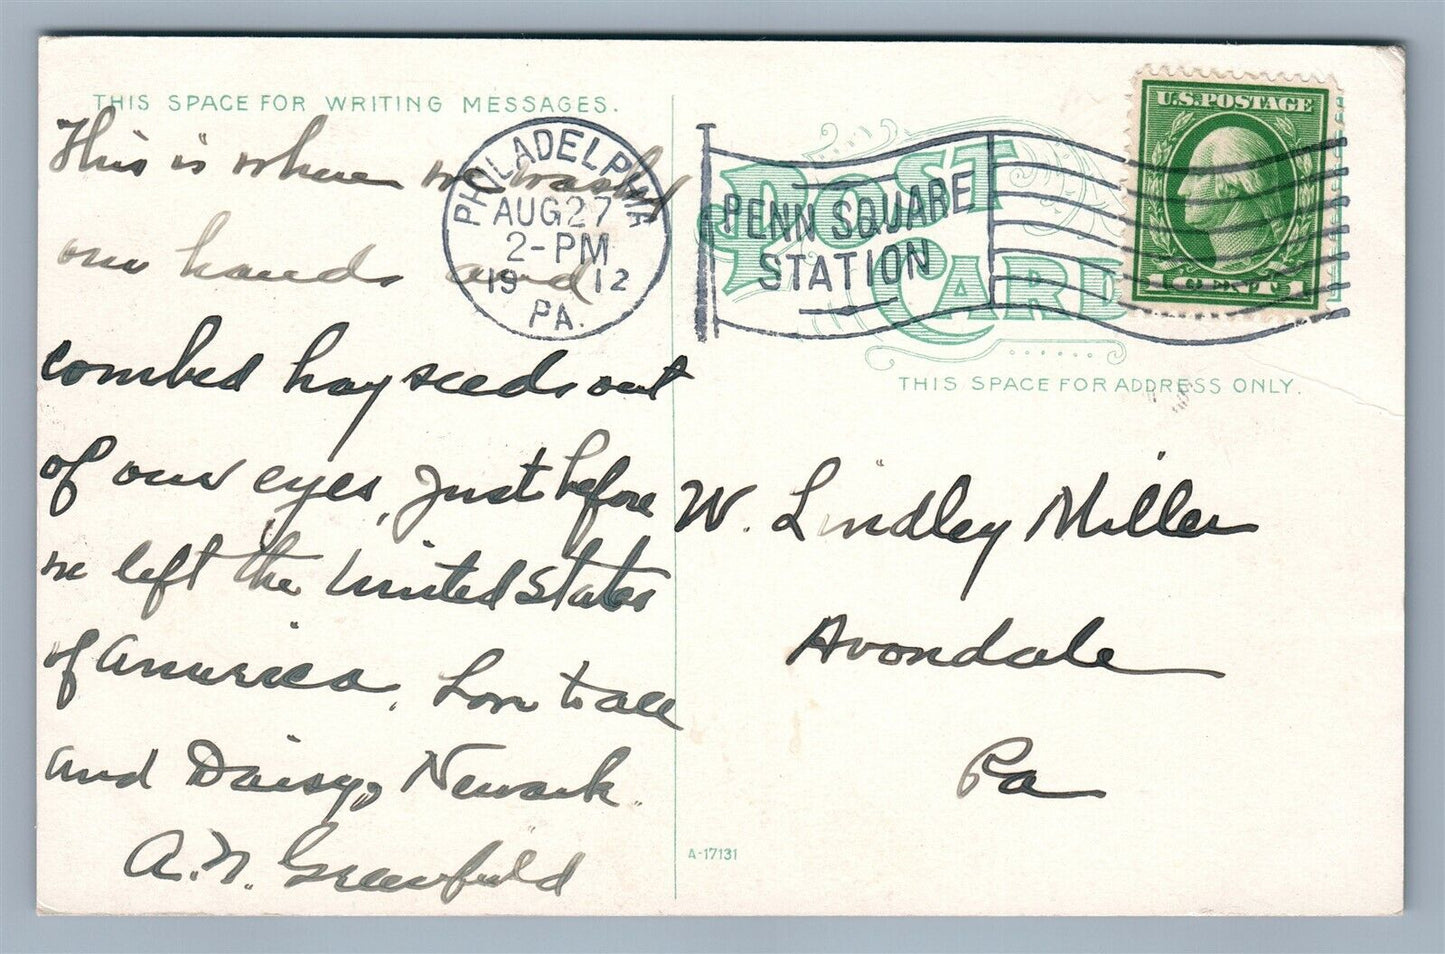 THIS SPACE FOR WRITING MESSAGES.
This is where we washed
our hands and
combed hay seeds out
of our eyes, Just before
we left the United States
of America. Love to all
and Daisy, Newark.
A. N. Greenfield
PHILADELPHIA
AUG 27
2-PM
1912
PA.
PENN SQUARE
STATION
POST
CARD
U.S. POSTAGE
1 CENT 1
THIS SPACE FOR ADDRESS ONLY.
W. Lindley Miller
Avondale
Pa
A-17131